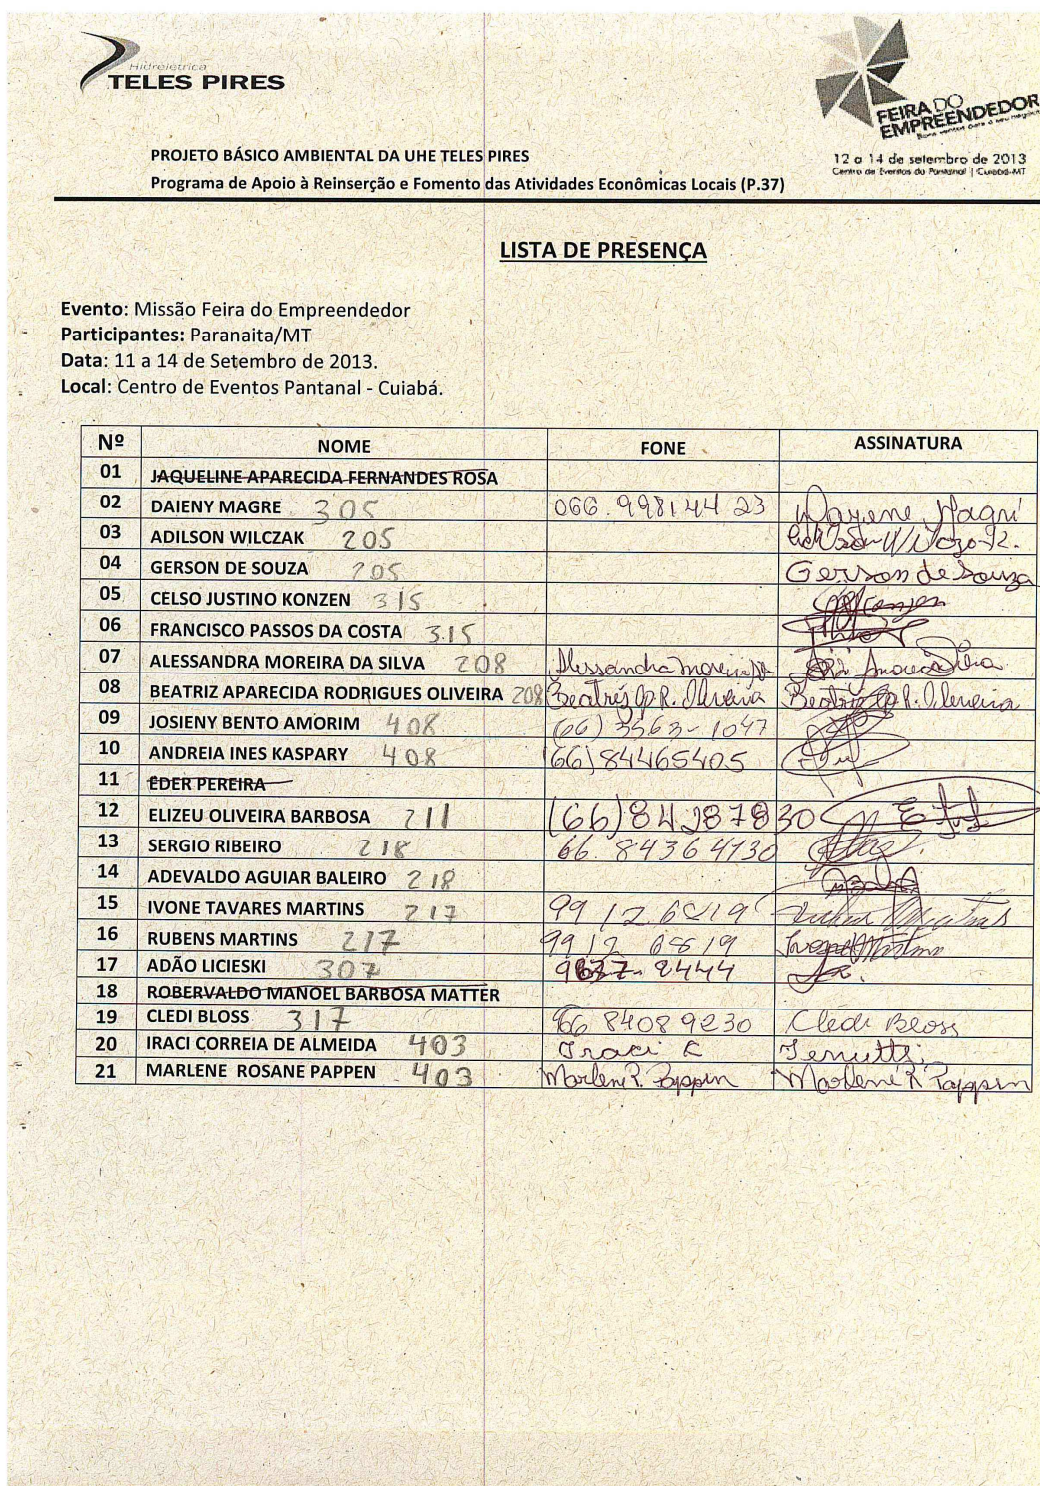 Hidrelétrica
TELES PIRES
FEIRA DO
EMPREENDEDOR
12 a 14 de setembro de 2013
Centro de Eventos do Pantanal | Cuiabá-MT
PROJETO BÁSICO AMBIENTAL DA UHE TELES PIRES
Programa de Apoio à Reinserção e Fomento das Atividades Econômicas Locais (P.37)
LISTA DE PRESENÇA
Evento: Missão Feira do Empreendedor
Participantes: Paranaita/MT
Data: 11 a 14 de Setembro de 2013.
Local: Centro de Eventos Pantanal - Cuiabá.
Nº NOME FONE ASSINATURA
01 JAQUELINE APARECIDA FERNANDES ROSA
02 DAIENY MAGRE 305 066.99814423
03 ADILSON WILCZAK 205
04 GERSON DE SOUZA 205 Gerson de Souza
05 CELSO JUSTINO KONZEN 315
06 FRANCISCO PASSOS DA COSTA 315
07 ALESSANDRA MOREIRA DA SILVA 208 Alessandra
08 BEATRIZ APARECIDA RODRIGUES OLIVEIRA 208 Beatriz Ap R. Oliveira Beatriz Ap R. Oliveira
09 JOSIENY BENTO AMORIM 408 (66) 3563-1047
10 ANDREIA INES KASPARY 408 (66)84465405
11 EDER PEREIRA
12 ELIZEU OLIVEIRA BARBOSA 211 (66)84287830
13 SERGIO RIBEIRO 218 66.84364130
14 ADEVALDO AGUIAR BALEIRO 218
15 IVONE TAVARES MARTINS 217 9912.6819
16 RUBENS MARTINS 217 9912 6819
17 ADÃO LICIESKI 307
18 ROBERVALDO MANOEL BARBOSA MATTER
19 CLEDI BLOSS 317 66 84089230 Cledi Bloss
20 IRACI CORREIA DE ALMEIDA 403 Iraci
21 MARLENE ROSANE PAPPEN 403 Marlene R. Pappen Marlene R Pappen